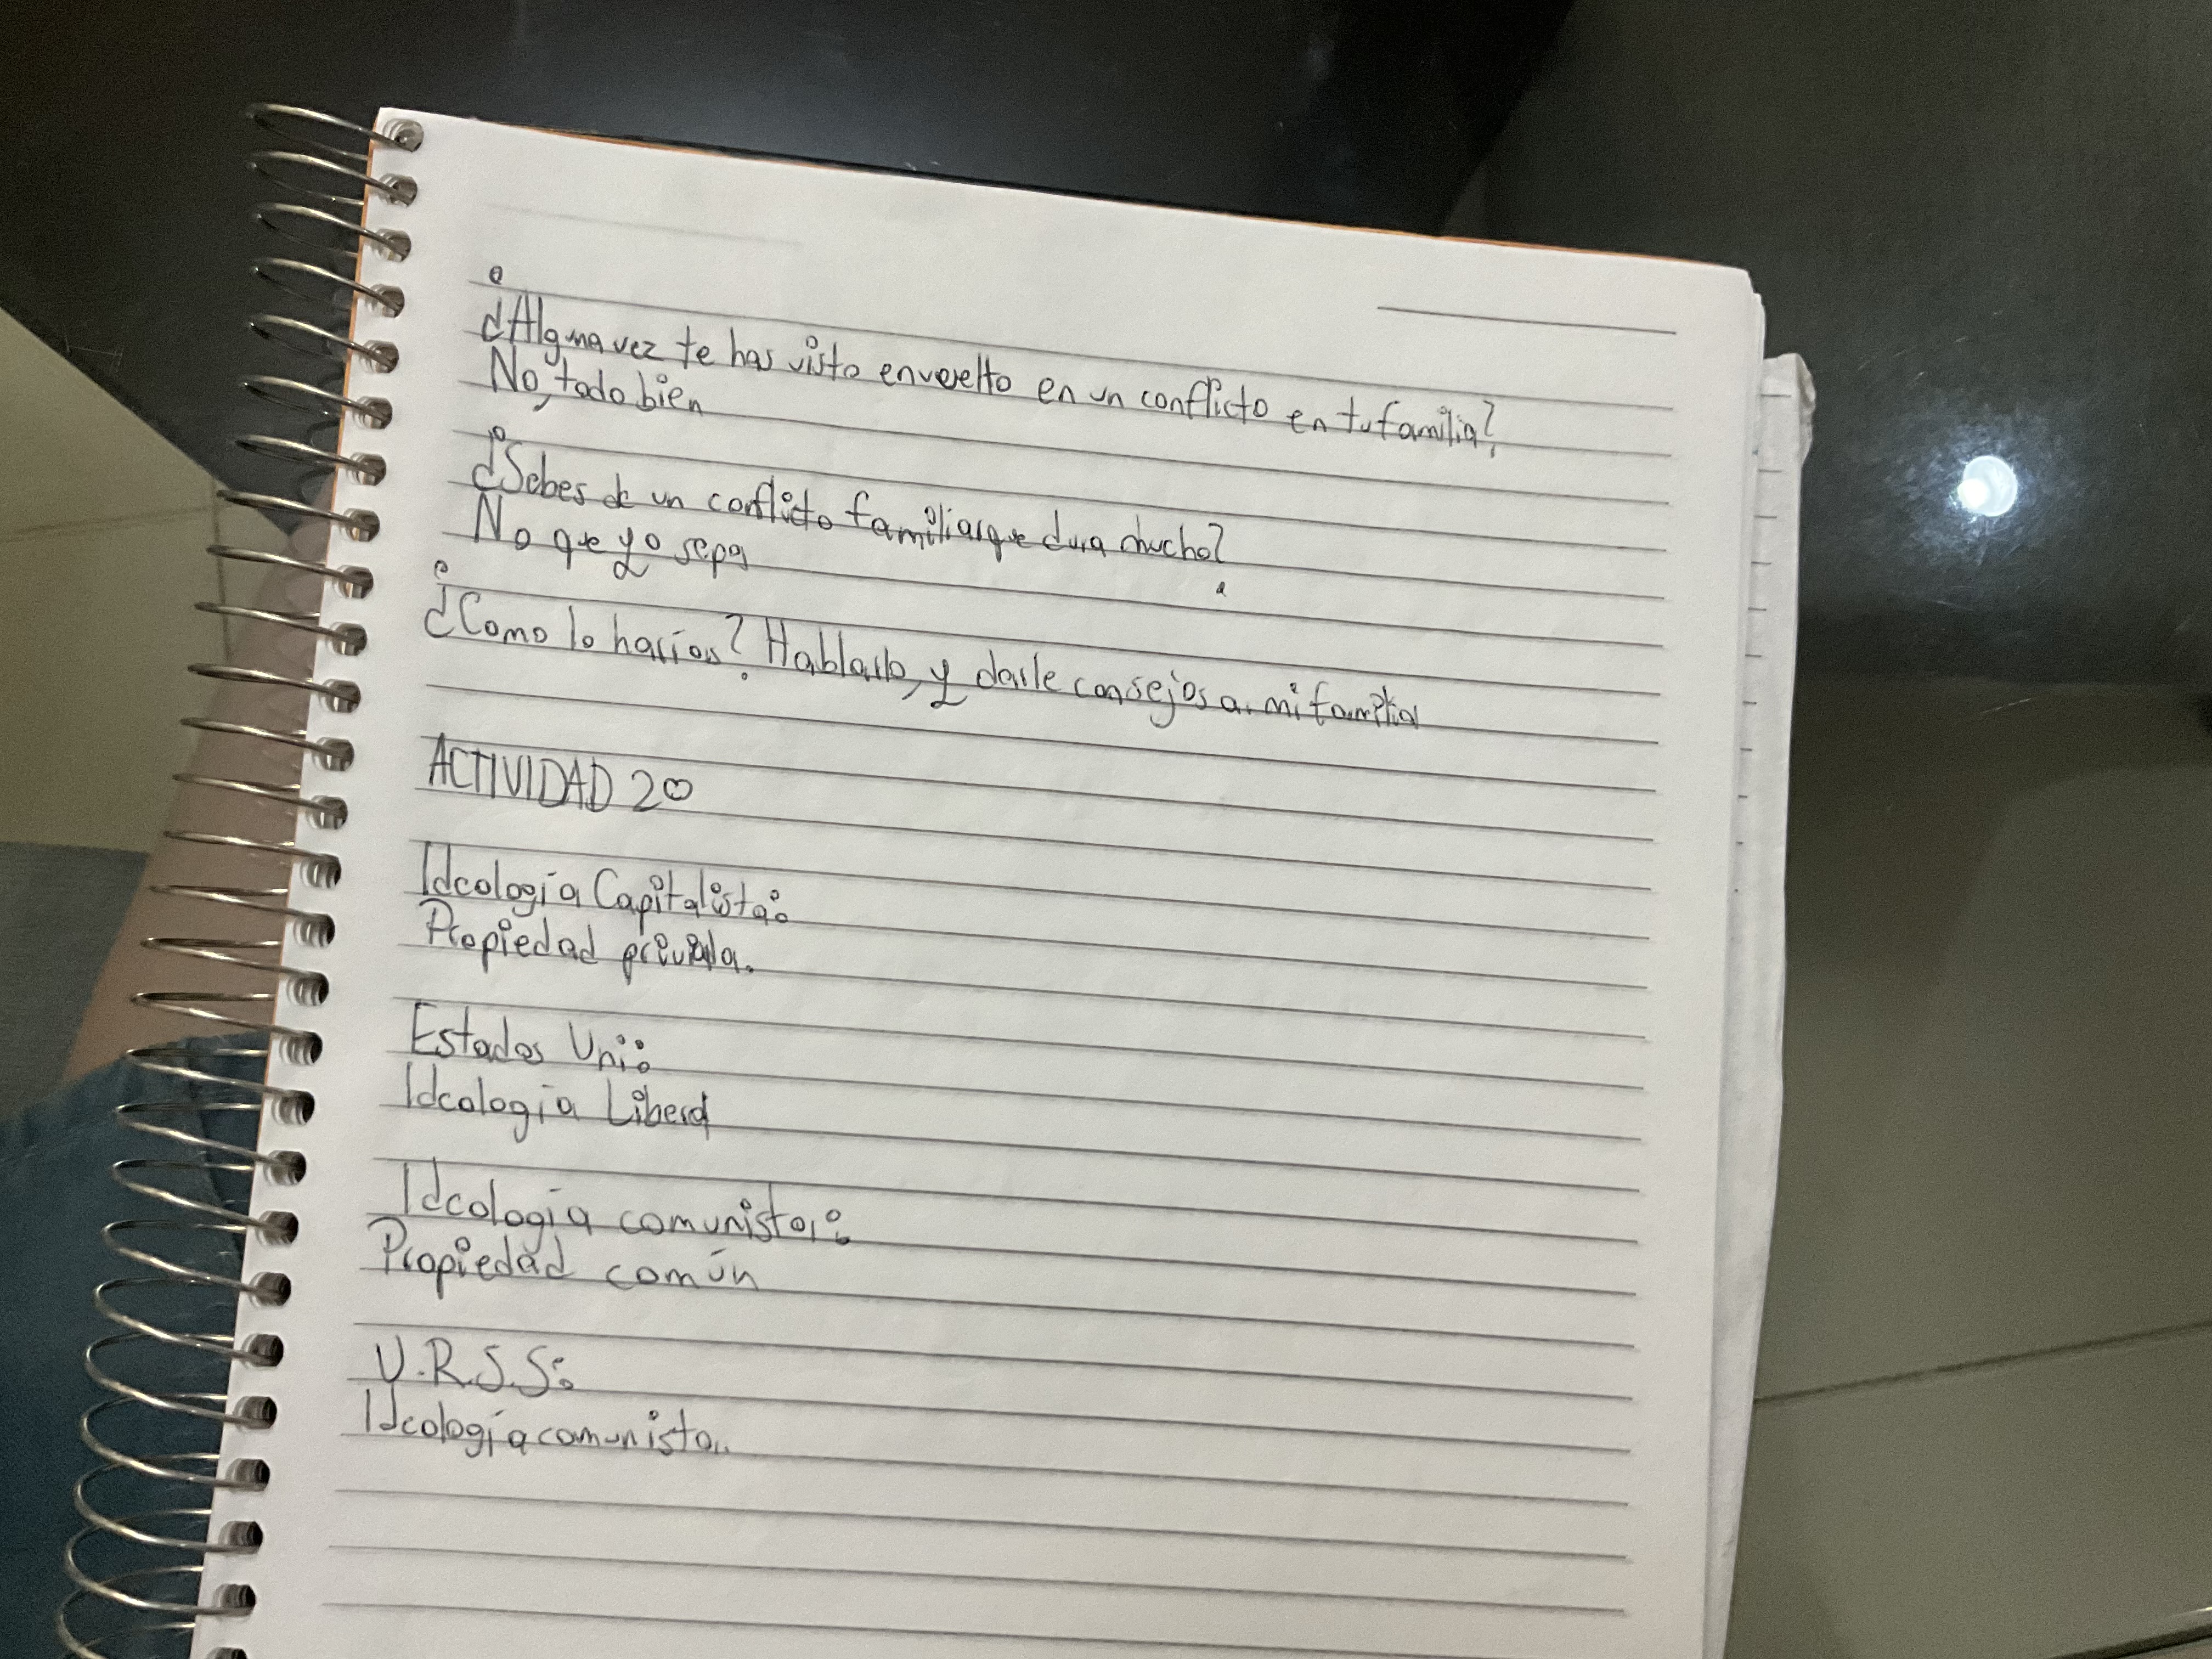 ¿Alguna vez te has visto envuelto en un conflicto en tu familia?
No, todo bien
¿Sabes de un conflicto familiar que dura mucho?
No que yo sepa
¿Como lo harías? Hablarlo, y darle consejos a mi familia
ACTIVIDAD 20
Ideología Capitalista:
Propiedad privada.
Estados Uni:
Ideología Liberal
Ideología comunista:
Propiedad común
U.R.S.S:
Ideología comunista.